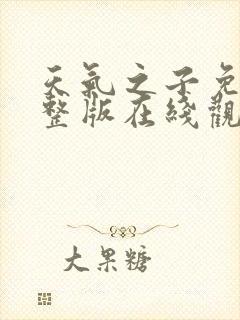 天氣之子免
整版在綫觀
大果糖